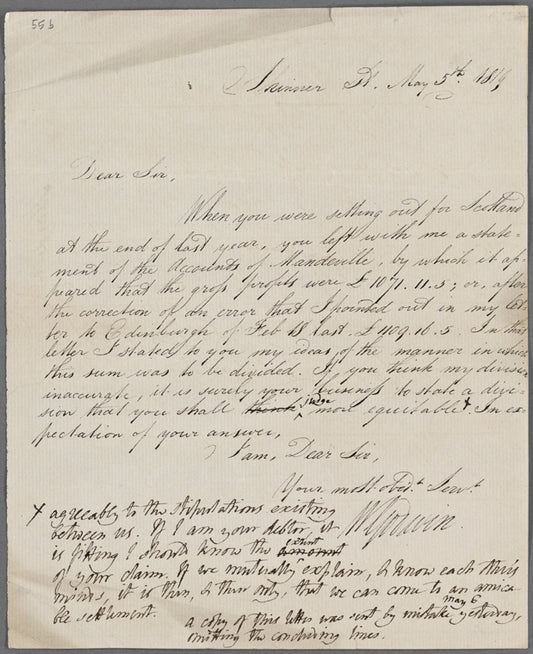 55b
Skinner St. May 5th. 1819
Dear Sir,
When you were setting out for Scotland
at the end of last year, you left with me a state-
ment of the Accounts of Mandeville, by which it ap-
peared that the gross profits were £ 1071. 11. 5; or, after
the correction of an error that I pointed out in my let-
ter to Edinburgh of Feb last £ 409. 16. 5. In that
letter I stated to you my ideas of the manner in which
this sum was to be divided. If you think my division
inaccurate, it is surely your business to state a divi-
sion that you shall think judge more equitable x. In ex-
pectation of your answer,
I am, Dear Sir,
Your most obedt. Servt.
WGodwin.
x agreeably to the stipulations existing
between us. If I am your debtor, it
is fitting I should know the amount extent
of your claim. If we mutually explain, & know each others
minds, it is then, & then only, that we can come to an amica-
ble settlement.
May 6
a copy of this letter was sent by mistake yesterday,
omitting the concluding lines.